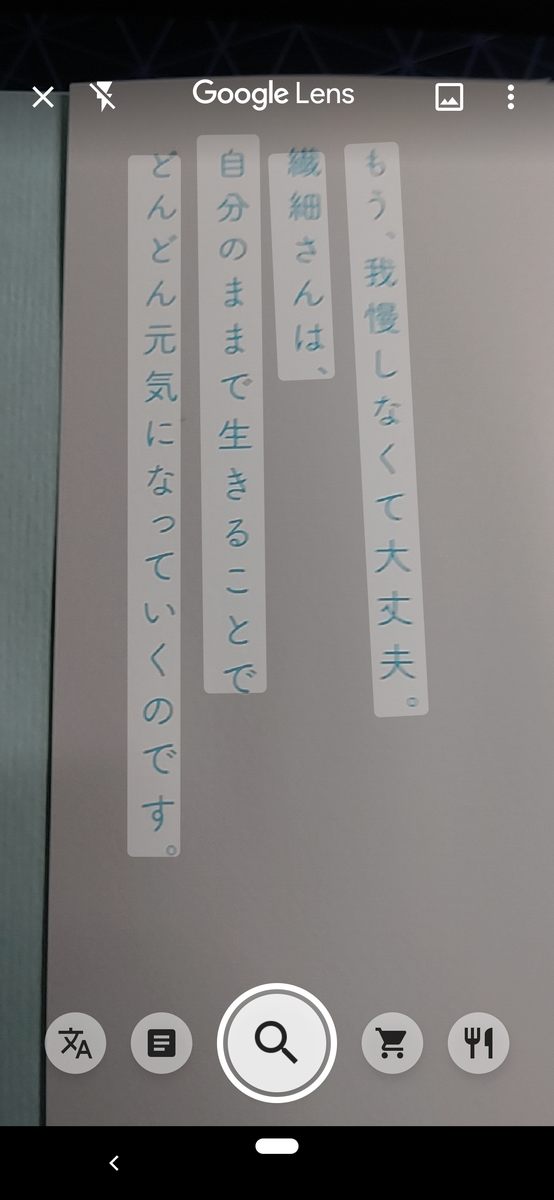 Google Lens
もう、我慢しなくて大丈夫。
繊細さんは、
自分のままで生きることで
どんどん元気になっていくのです。